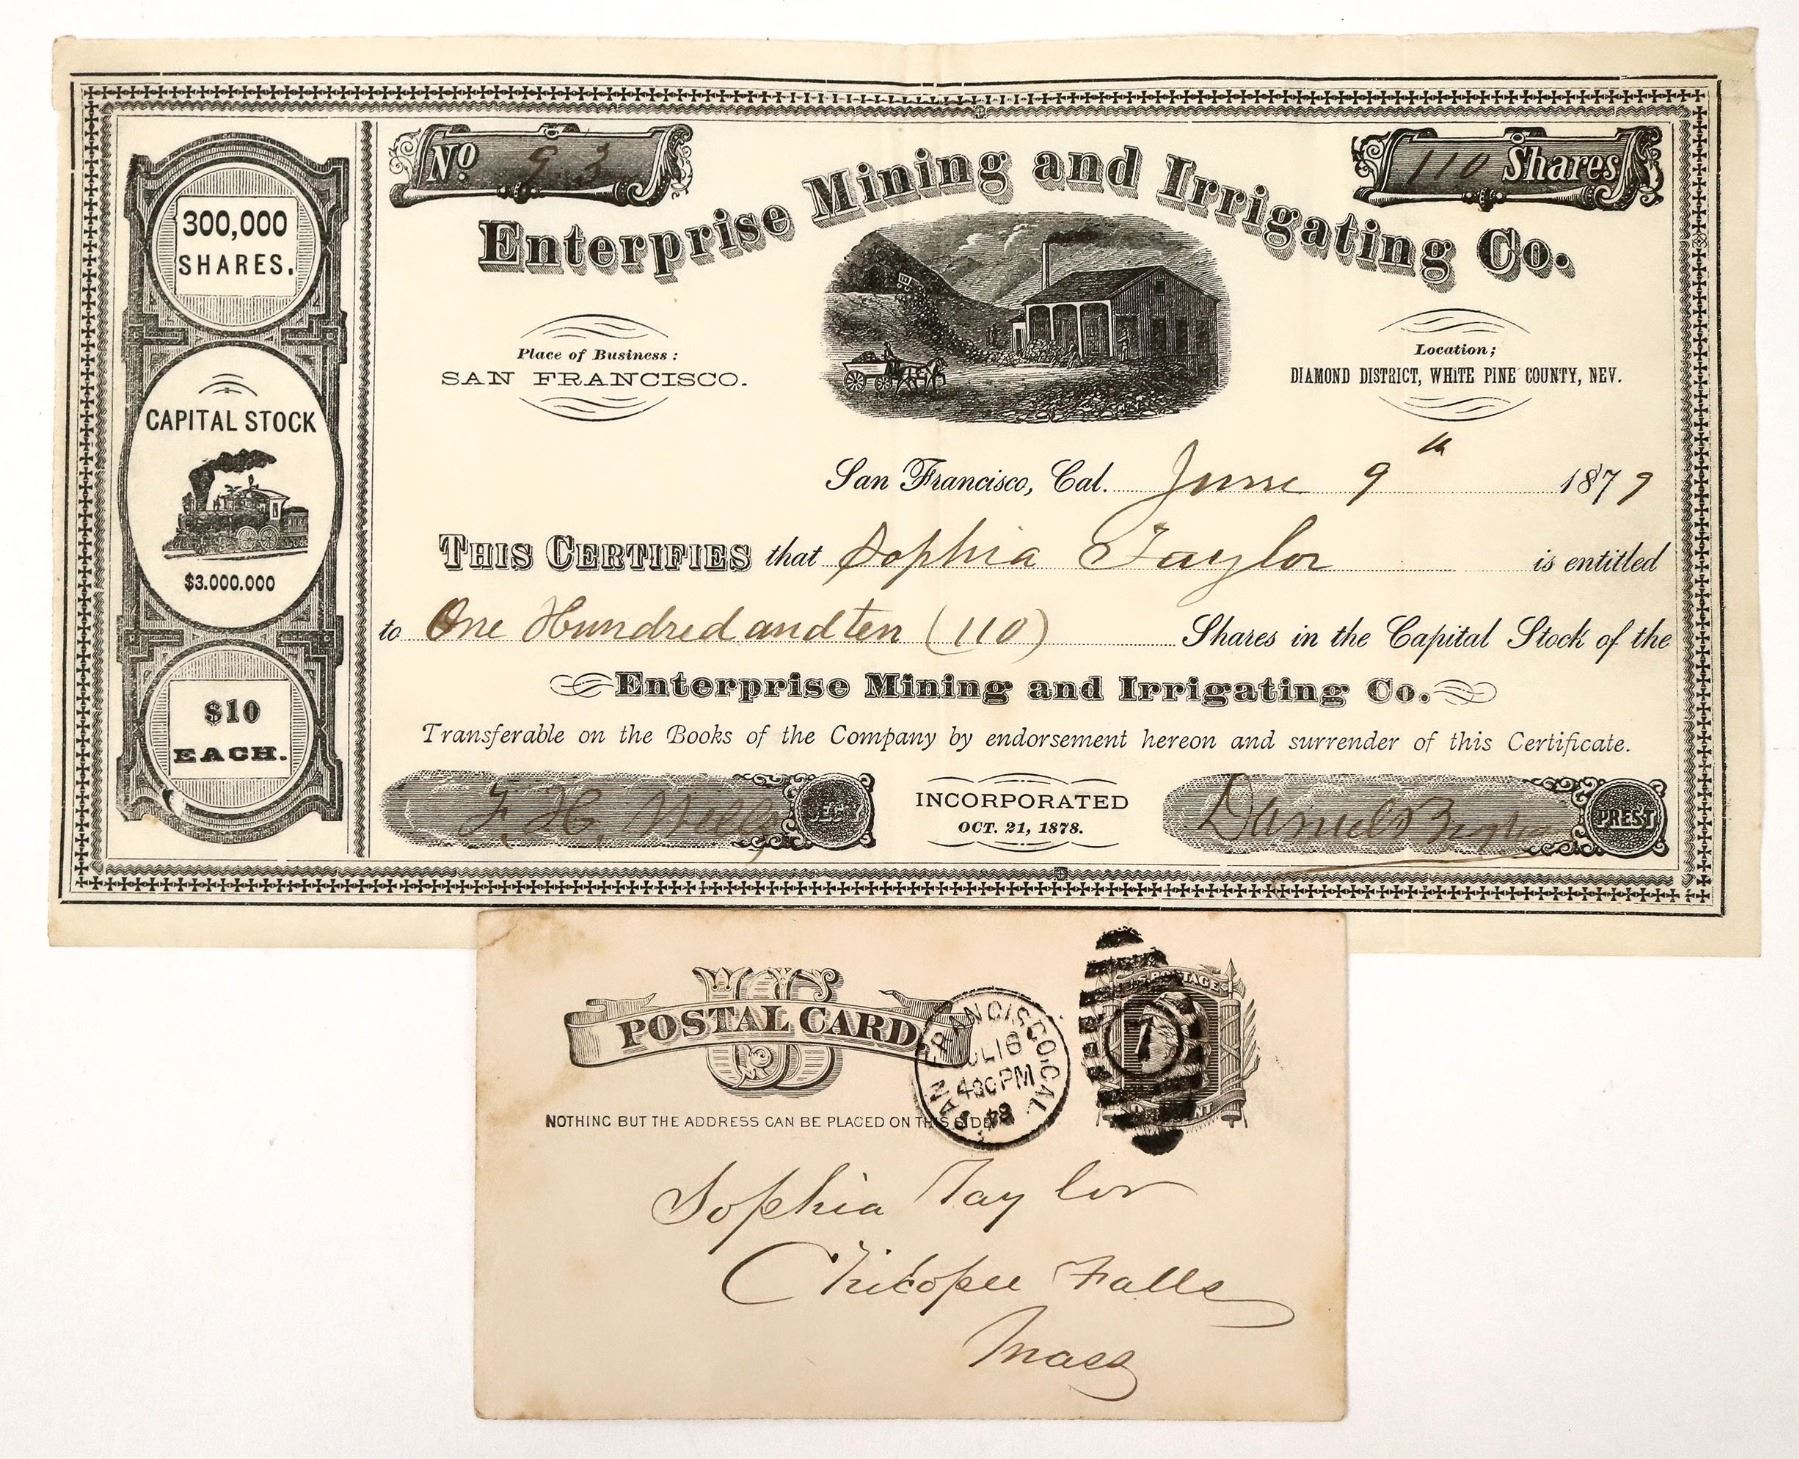 No 93
110 Shares
Enterprise Mining and Irrigating Co.
300,000
SHARES.
CAPITAL STOCK
$3.000.000
$10
EACH.
Place of Business:
SAN FRANCISCO.
Location;
DIAMOND DISTRICT, WHITE PINE COUNTY, NEV.
San Francisco, Cal. June 9th 1879
THIS CERTIFIES that Sophia Taylor is entitled
to One Hundred and ten (110) Shares in the Capital Stock of the
Enterprise Mining and Irrigating Co.
Transferable on the Books of the Company by endorsement hereon and surrender of this Certificate.
F. H. SECY
INCORPORATED
OCT. 21, 1878.
Daniel PREST
US
POSTAL CARD
NOTHING BUT THE ADDRESS CAN BE PLACED ON THIS SIDE
SAN FRANCISCO, CAL.
JUL 16
430 PM
7
Sophia Taylor
Chicopee Falls
Mass